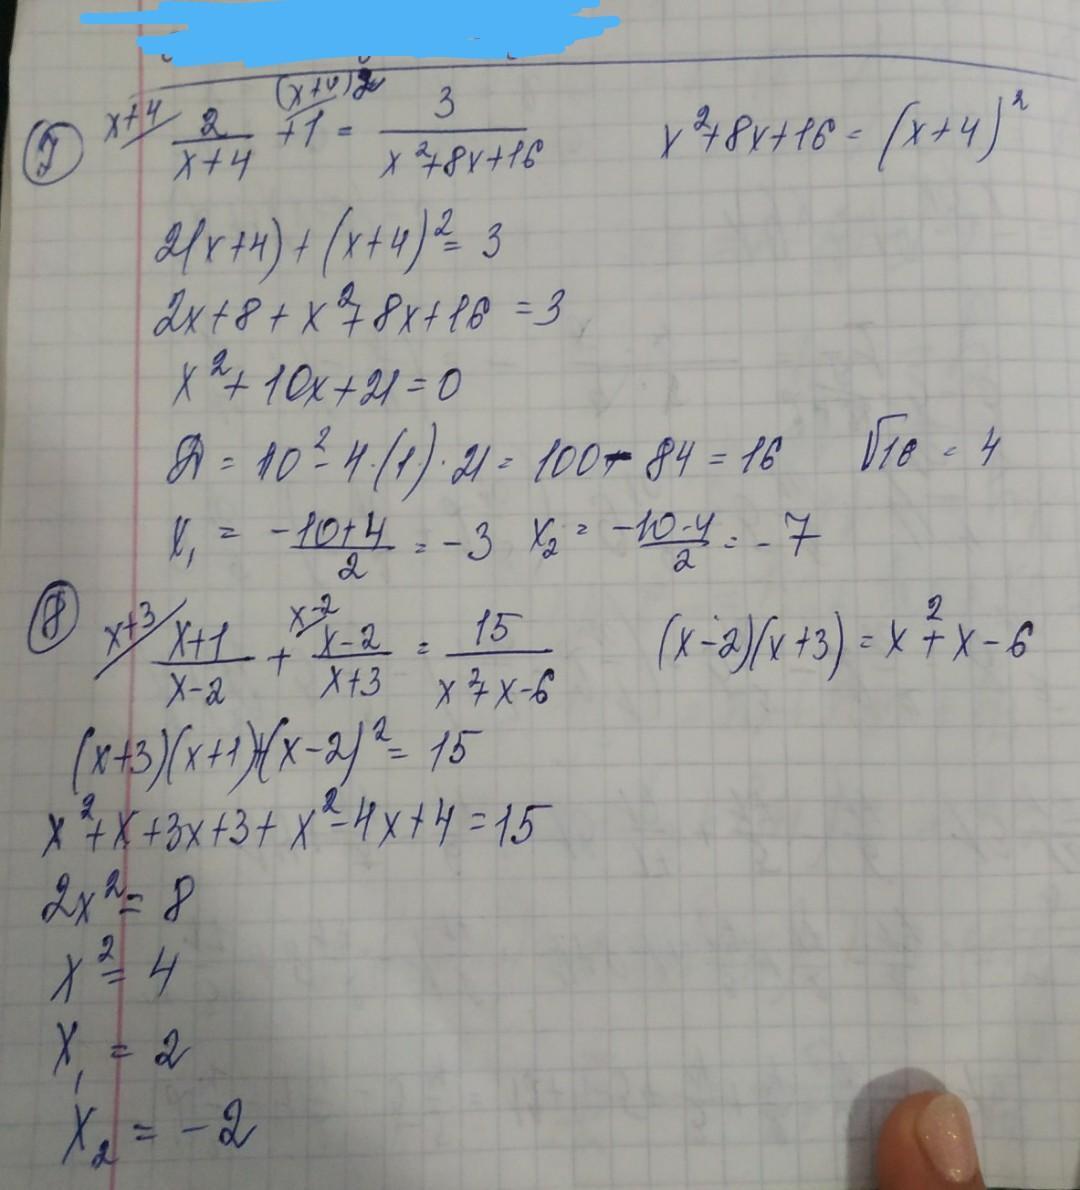 7 x+4/ 2/(x+4) (x+4)²/ +1 = 3/(x²+8x+16) x²+8x+16 = (x+4)²
2(x+4) + (x+4)² = 3
2x+8 + x²+8x+16 = 3
x² + 10x + 21 = 0
D = 10² - 4·(1)·21 = 100 - 84 = 16 √16 = 4
x₁ = (-10+4)/2 = -3 x₂ = (-10-4)/2 = -7
8 x+3/ (x+1)/(x-2) + x-2/ (x-2)/(x+3) = 15/(x²+x-6) (x-2)(x+3) = x²+x-6
(x+3)(x+1)+(x-2)² = 15
x²+x+3x+3+x²-4x+4=15
2x² = 8
x² = 4
x₁ = 2
x₂ = -2